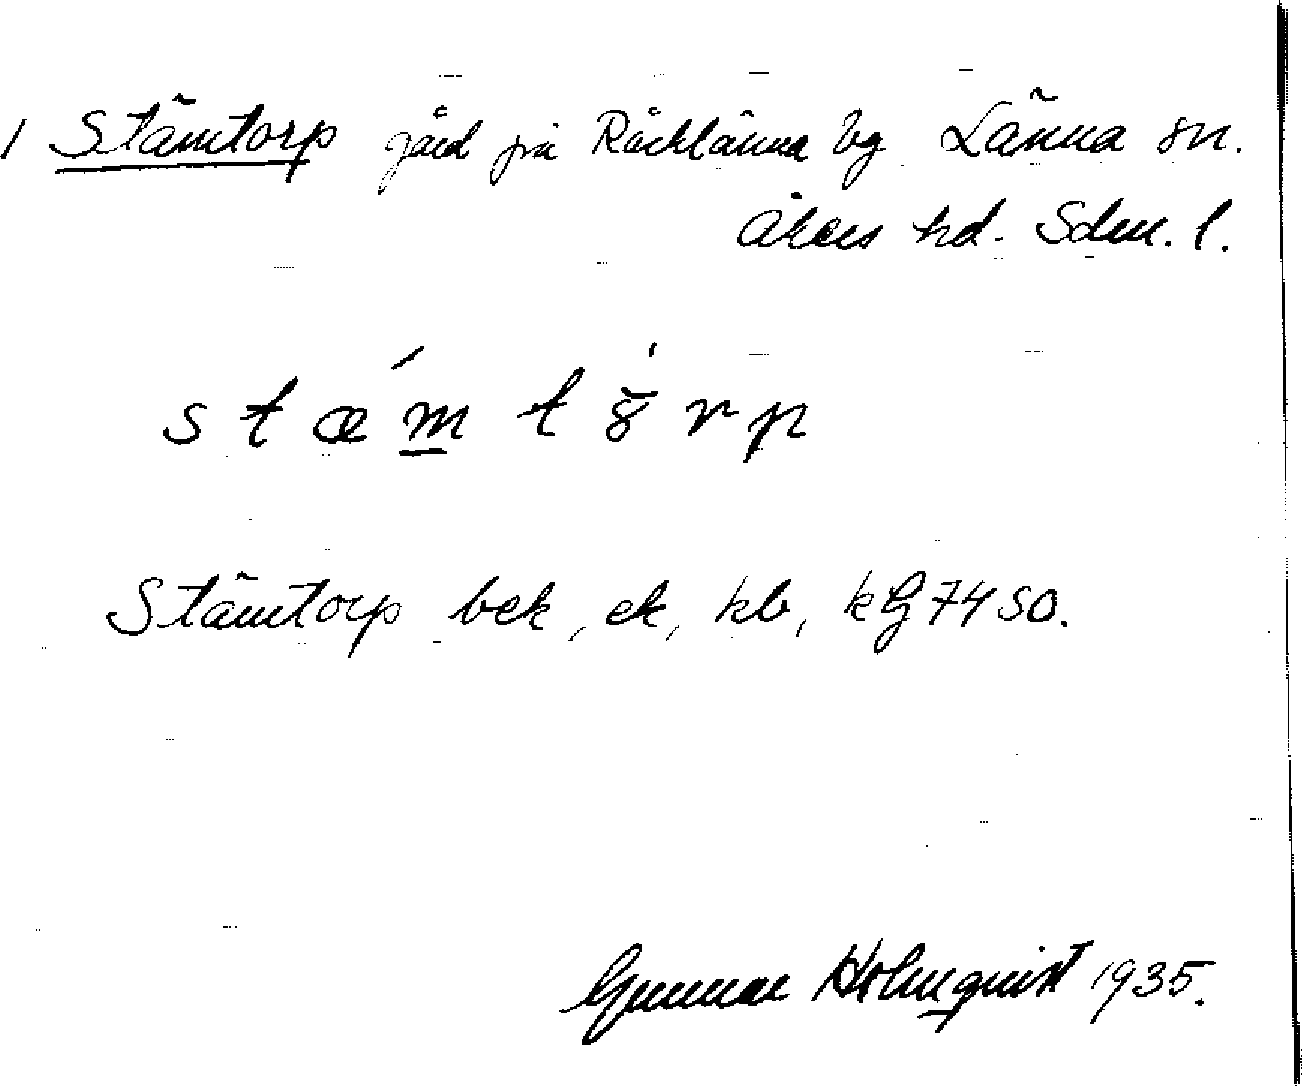 1 Stämtorp gård på Räcklänna by Länna sn.
Åkers hd. Sdm. l.
s t ǽ m t ɣ̄̍ r p
Stämtorp bek, ek, kb, kG 74 SO.
Gunnar Holmquist 1935.